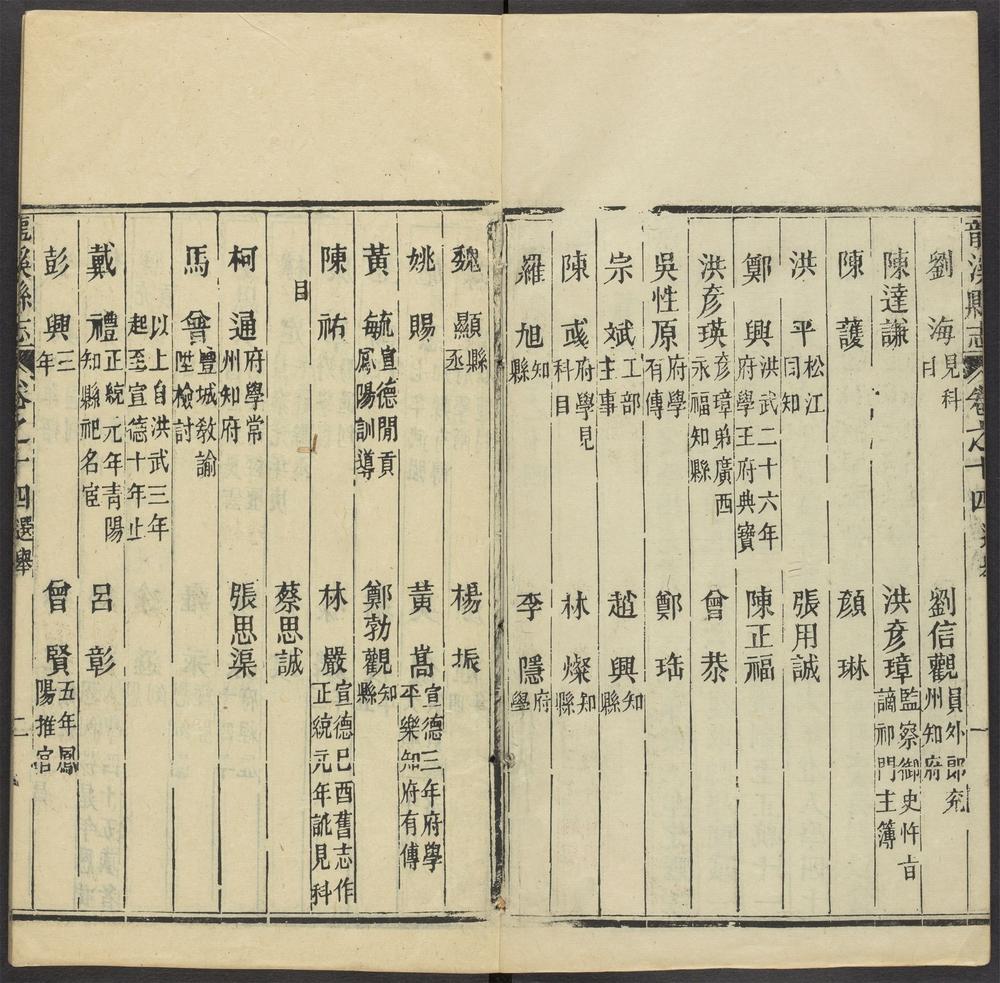 龍溪縣志 卷之十四 選舉 一
劉海 見科目 劉信觀 員外郎兖州知府
陳達謙 洪彥璋 監察御史忤旨謫祁門主簿
陳護 顏琳
洪平 松江同知 張用誠
鄭興 洪武二十六年府學王府典寶 陳正福
洪彥瑛 彥璋弟廣西永福知縣 曾恭
吳性原 府學有傳 鄭珤
宗斌 工部主事 趙興 知縣
陳彧 府學見科目 林燦 知縣
羅旭 知縣 李隱 府學
魏顯 縣丞 楊振
姚賜 黃嵩 宣德三年府學平樂知府有傳
黃毓 宣德閒貢鳳陽訓導 鄭勃觀 知縣
陳祐 林嚴 宣德己酉舊志作正統元年訛見科
目 蔡思誠
柯通 府學常州知府 張思渠
馬曾 豐城敎諭陞檢討
以上自洪武三年起至宣德十年止
戴禮 正統元年靑陽知縣祀名宦 呂彰
彭興 三年 曾賢 五年鳳陽推官
龍溪縣志 卷之十四 選舉 二